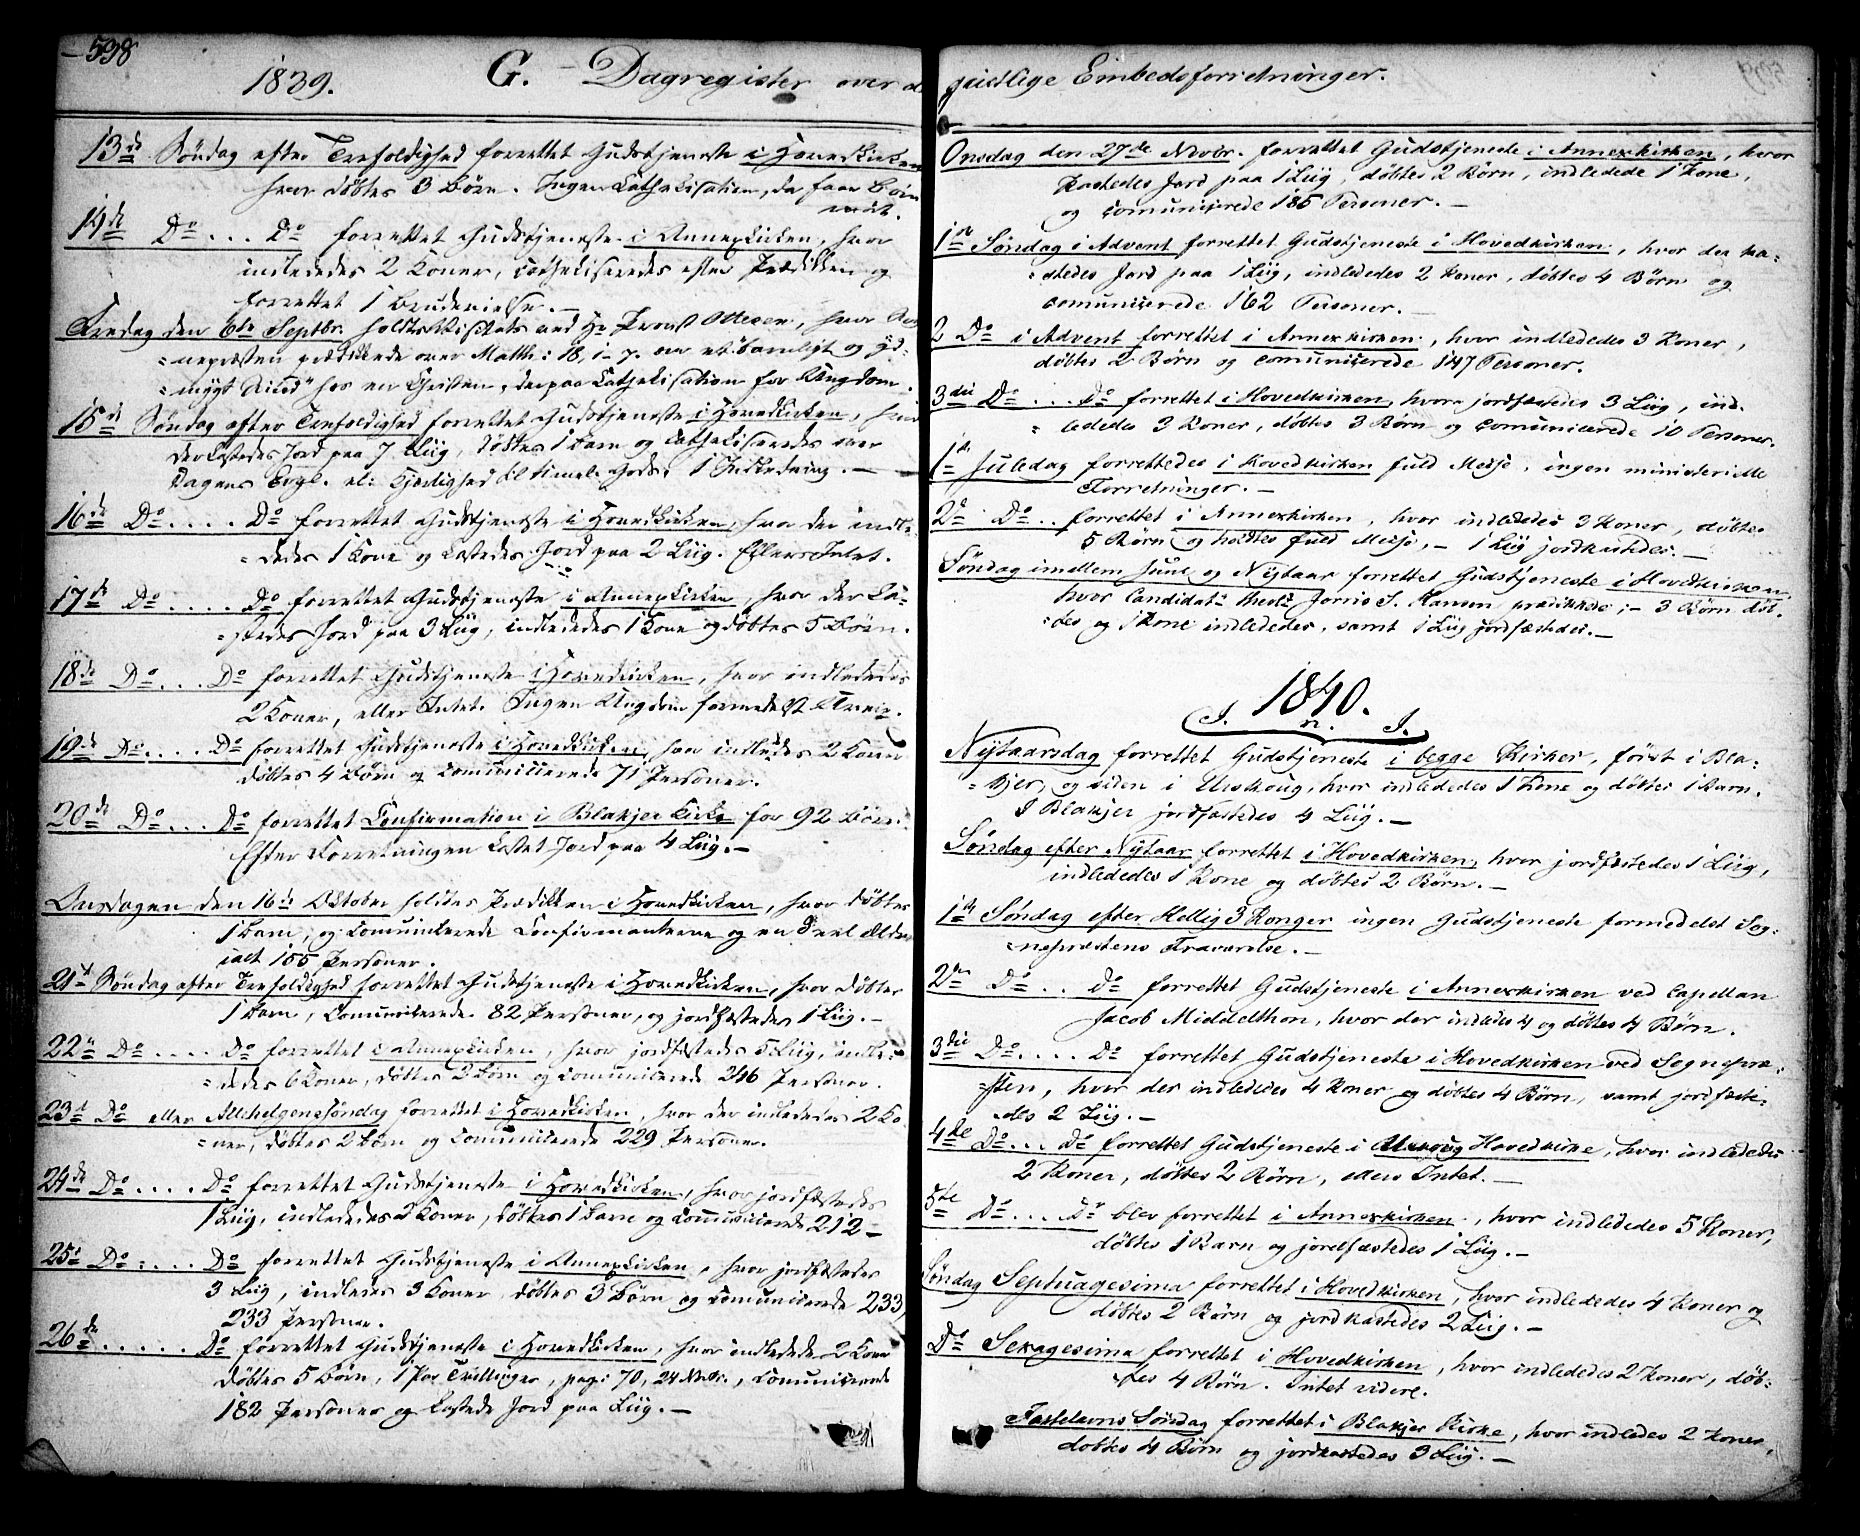 538
1839. G. Dagregister over de
13de Søndag efter Trefoldighed forrettet Gudstjeneste i Hovedkirken
hvor døbtes 3 Børn. Ingen Cathekisation, da faae Børn
mødt.
14de Do ... Do forrettet Gudstjeneste i Annexkirken, hvor
indlededes 2 Koner, catheciseredes efter Prædikken og
forrettet 1 Brudevielse. —
Fredag den 6te Septbr. holdt Visitats ved Hr Provst Ottesen, hvor Sog-
=nepræsten prædikede over Matth: 18, 1-7. om et barnligt og yd-
=mygt Sind hos en Christen, derpaa Cathekisation for Ungdom.
15de Søndag efter Trefoldighed forrettet Gudstjeneste i Hovedkirken, hvor
der kastedes Jord paa 7 Liig, døbtes 1 Barn og catheciseredes over
Dagens Evgl. Kjerlighed til timel. Gods; 1 Indledning. —
16de Do .... Do forrettet Gudstjeneste i Hovedkirken, hvor der indle-
=dedes 1 Kone og kastedes Jord paa 2 Liig. Ellers Intet.
17de Do .... Do forrettet Gudstjeneste i Annexkirken, hvor der ka-
=stedes Jord paa 3 Liig, indlededes 1 Kone og døbtes 5 Børn.
18de Do ... Do forrettet Gudstjeneste i Hovedkirken, hvor indlededes
2 Koner, eller Intet. Ingen Ungdom formedelst
19de Do .... Do forrettet Gudstjeneste i Hovedkirken, hvor indledes 2 Koner
døbtes 4 Børn og communicerede 71 Personer.
20de Do ... Do forrettet Confirmation i Blakjer Kirke for 92 Børn.
Efter Forretningen kastet Jord paa 4 Liig. —
Onsdagen den 16de Oktober holdtes Prædikken i Hovedkirken, hvor døbtes
1 Barn, og communicerede Confirmanterne og en Deel Ældre
ialt 155 Personer.
21de Søndag efter Trefoldighed forrettet Gudstjeneste i Hovedkirken, hvor døbtes
1 Barn, communicerede 82 Personer, og jordfæstedes 1 Liig. —
22de Do .... Do forrettet i Annexkirken, hvor jordfæstedes 5 Liig, indle-
=dedes 6 Koner, døbtes 2 Børn og communicerede 246 Personer.
23de Do eller Allehelgenssøndag forrettet i Hovedkirken, hvor der indlededes 2 Ko
=ner, døbtes 2 Børn og communicerede 229 Personer.
24de Do .... Do forrettet Gudstjeneste i Hovedkirken, hvor jordfæstedes
1 Liig, indlededes 2 Koner, døbtes 1 Barn og communicerede 212 —
25de Do .... Do forrettet Gudstjeneste i Annexkirken, hvor jordfæstedes
3 Liig, indledes 3 Koner, døbtes 3 Børn og communicerede 233,
233 Personer.
26de ...... Do forrettet Gudstjeneste i Hovedkirken, hvor indledede 2 Koner
døbtes 5 Børn, 1 Par Tvillinger, pag: 70, 24 Novbr., communicerede
182 Personer og kastede Jord paa Liig. —
geistlige Embedsforretninger.
Onsdag den 27de Novbr. forrettet Gudstjeneste i Annexkirken, hvor
kastedes Jord paa 1 Liig, døbtes 2 Børn, indledede 1 Kone,
og communicerede 185 Personer. —
1ste Søndag i Advent forrettet Gudstjeneste i Hovedkirken, hvor der ka-
=stedes Jord paa 1 Liig, indlededes 2 Koner, døbtes 4 Børn og
communicerede 162 Personer. —
2 Do i Advent forrettet i Annexkirken, hvor indlededes 3 Koner,
døbtes 2 Børn og communicerede 147 Personer.
3die Do ... Do forrettet i Hovedkirken, hvor jordfæstedes 3 Liig, ind-
=lededes 3 Koner, døbtes 3 Børn og communicerede 10 Personer.
1ste Juledag forrettedes i Hovedkirken fuld Messe, ingen ministerielle
Forretninger. —
2de Do .. forrettet i Annexkirken, hvor indlededes 3 Koner, døbte
5 Børn og holdtes fuld Messe, — 1 Liig jordkastedes. —
Søndag imellem Juul og Nytaar forrettet Gudstjeneste i Hovedkirken,
hvor Candidat theol: Jørris S. Hansen prædikede; — 3 Børn døb-
=tes og 1 Kone indlededes, samt 1 Liig jordfæstedes. —
1840.
I. n. I.
Nytaarsdag forrettet Gudstjeneste i begge Kirker, først i Bla-
=kjer, og siden i Urskoug, hvor indlededes 1 Kone og døbtes 1 Barn.
I Blakjer jordfæstedes 4 Liig. —
Søndag efter Nytaar forrettet i Hovedkirken, hvor jordfæstedes 1 Liig,
indlededes 1 Kone og døbtes 2 Børn. —
1ste Søndag efter Hellig 3 Konger ingen Gudstjeneste formedelst Sog-
=nepræstens Fraværelse. —
2den Do .. Do forrettet Gudstjeneste i Annexkirken ved Capellan
Jacob Middelthon, hvor der indledes 4 og døbtes 4 Børn.
3die Do .... Do forrettet Gudstjeneste i Hovedkirken ved Sognepræ-
=sten, hvor der indlededes 4 Koner og døbtes 4 Børn, samt jordfæste-
=des 2 Liig. —
4de Do ... Do forrettet Gudstjeneste i Urskoug Hovedkirke, hvor indlededes
2 Koner, døbtes 2 Børn, ellers Intet. —
5te Do ... Do blev forrettet i Annexkirken, hvor indlededes 5 Koner,
døbtes 1 Barn og jordfæstedes 1 Liig. —
Søndag Septuagesima forrettet i Hovedkirken, hvor indlededes 4 Koner og
døbtes 2 Børn og jordkastedes 2 Liig. —
Do Sexagesima forrettet i Hovedkirken, hvor indlededes 2 Koner, døb-
=tes 4 Børn. Intet videre.
Fastelavns Søndag forrettet i Blakjer Kirke, hvor indlededes 2 Koner,
døbtes 4 Børn og jordkastedes 3 Liig. —